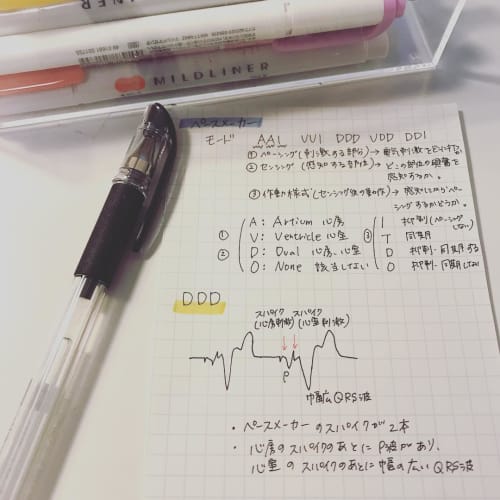 LINER
MILDLINER
ペースメーカー
モード AAI VVI DDD VDD DDI
① ペーシング(刺激する部分)→ 電気刺激を
② センシング(感知する部位)→ どこの部位の興奮を
感知するか。
③ 作動様式(センシング後の動作)→ 感知したらペー
シングするかどうか。
① A: Artium 心房
V: Ventricle 心室
② D: Dual 心房、心室
O: None 該当しない
③ I 抑制(ペーシングしない)
T 同期
D 抑制・同期する
O 抑制・同期しない
DDD
スパイク スパイク
(心房刺激) (心室刺激)
P
巾広QRS波
・ペースメーカーのスパイクが2本
・心房のスパイクのあとにP波があり、
心室のスパイクのあとに巾の広いQRS波